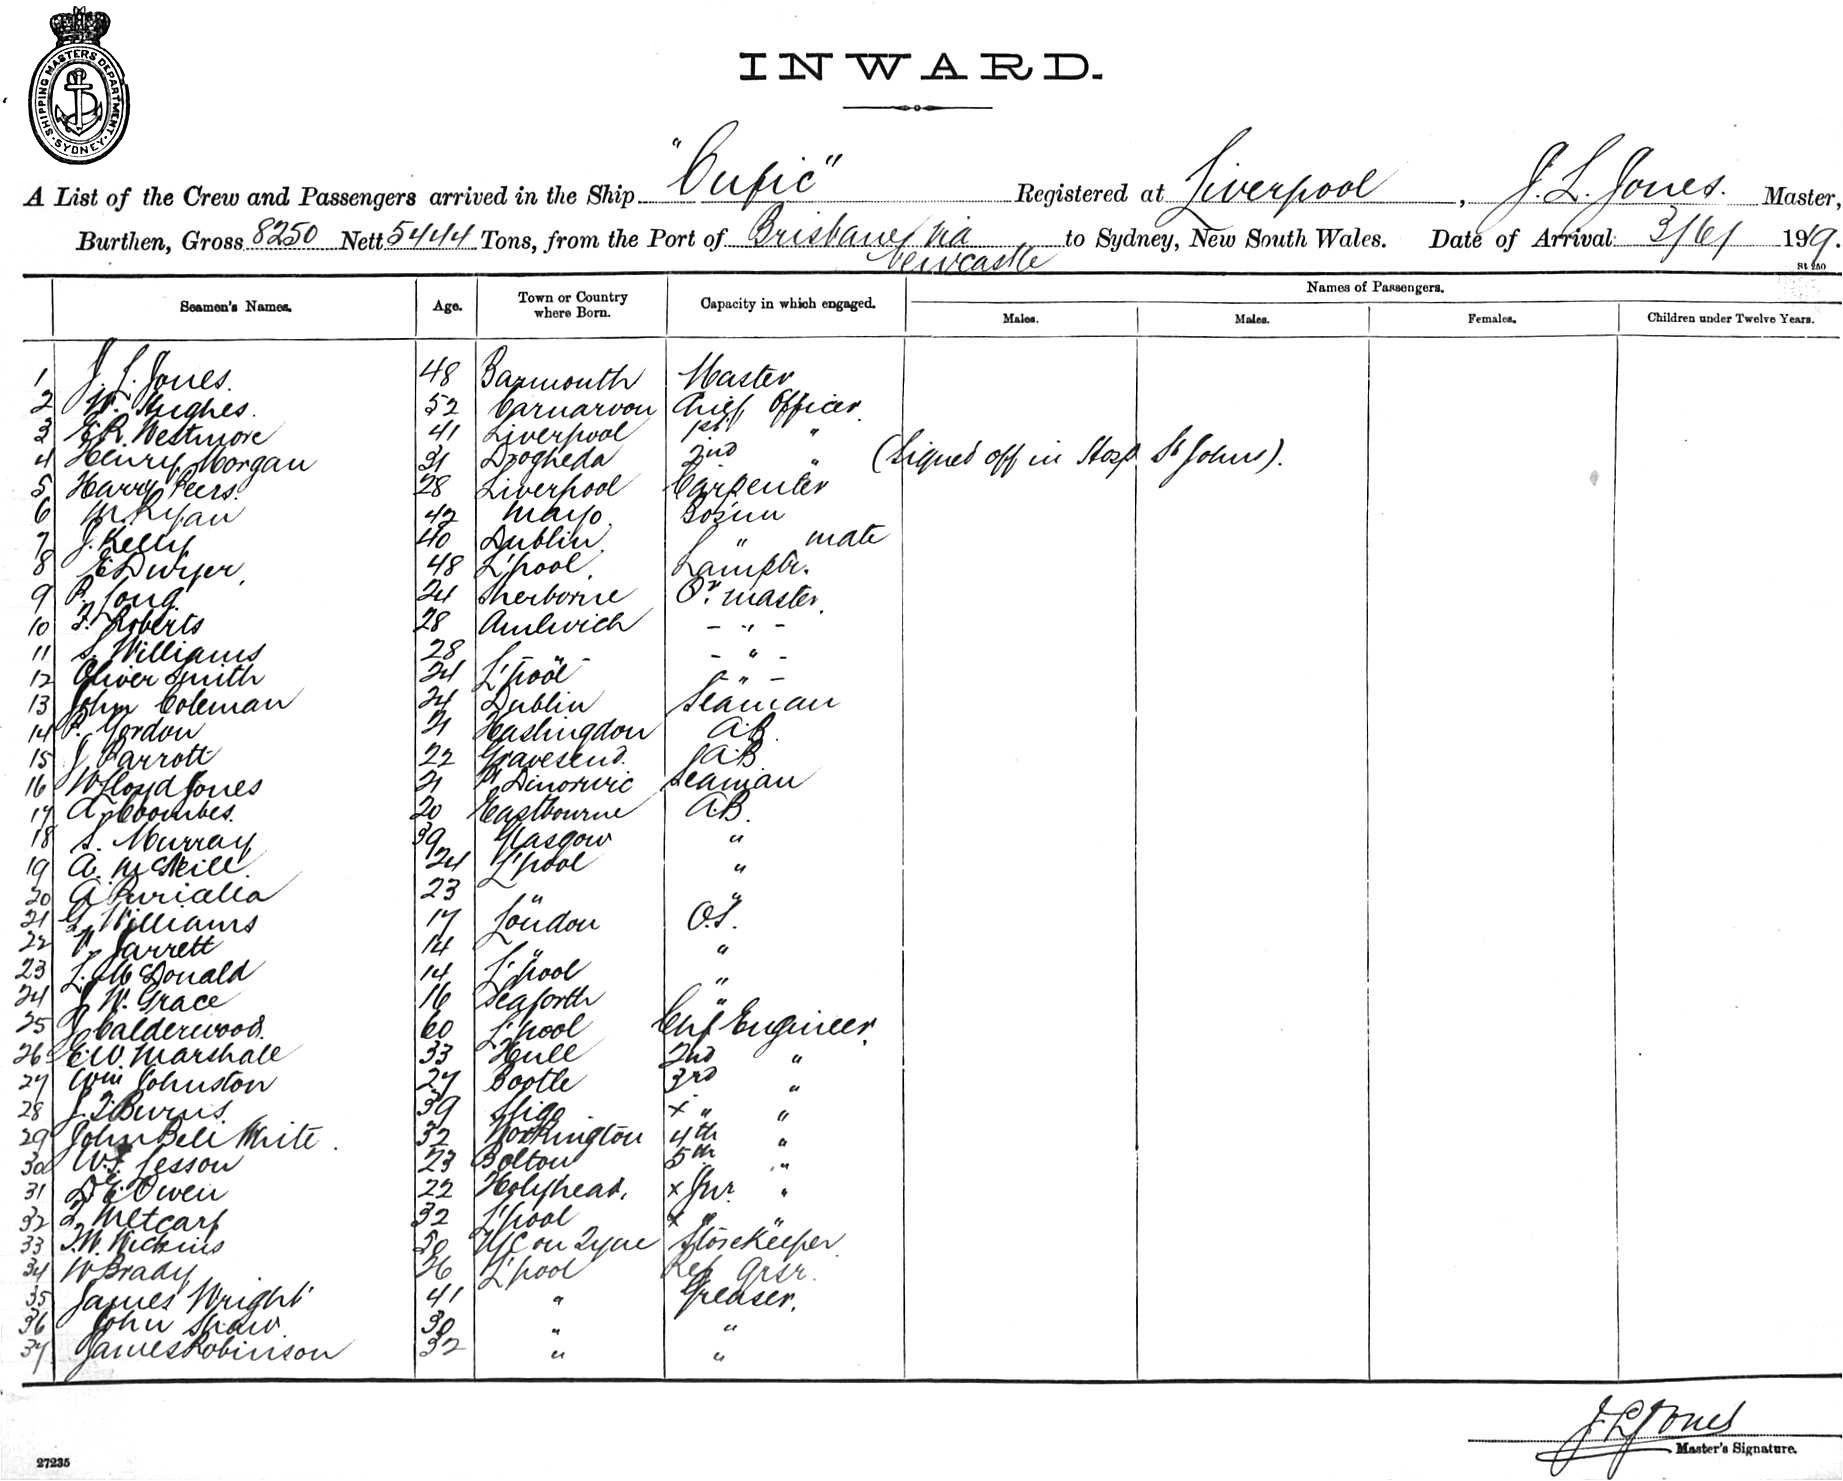 SHIPPING MASTERS DEPARTMENT · SYDNEY ·
INWARD.
A List of the Crew and Passengers arrived in the Ship "Cufic" Registered at Liverpool, J. L. Jones. Master,
Burthen, Gross 8250 Nett 5444 Tons, from the Port of Brisbane via Newcastle to Sydney, New South Wales. Date of Arrival 3/6/ 1919.
St 250
Seamen's Names. Age. Town or Country where Born. Capacity in which engaged. Names of Passengers.
Males. Males. Females. Children under Twelve Years.
1 J. L. Jones. 48 Barmouth Master
2 W. Hughes. 52 Carnarvon Chief Officer
3 E.R. Westmore 41 Liverpool 1st "
4 Henry Morgan 31 Drogheda 2nd " (Signed off in Hosp. St Johns).
5 Harry Peers. 28 Liverpool Carpenter
6 M. Ryan 42 Mayo Bosun
7 J. Kelly 40 Dublin " mate
8 E Dwyer 48 L'pool Lamptr.
9 P. Long. 24 Sherborne Qr. master
10 F. Roberts 28 Amlwich - " -
11 S. Williams 28 - " - - " -
12 Oliver Smith 24 L'pool - " -
13 John Coleman 24 Dublin Seaman
14 P. Gordon 21 Haslingdon A.B.
15 J Parrott 22 Gravesend. A.B
16 W Lloyd Jones 21 Pt Dinorwic Seaman
17 A. Coombes. 20 Eastbourne A.B.
18 S. Murray 39 Glasgow "
19 A. McNeill. 24 L'pool "
20 A. 23 " "
21 G. Williams 17 London O.S.
22 V. Jarrett 14 " "
23 L. McDonald 14 L'pool "
24 J W. Grace 16 Seaforth "
25 J Calderwood. 60 L'pool Chf Engineer.
26 E.W. Marshall 33 Hull 2nd "
27 Wm Johnston 27 Bootle 3rd "
28 J. T. Burns 39 Sligo x " "
29 John Bell White. 32 Workington 4th "
30 W.J. Lesson 23 Bolton 5th "
31 D E Owen 22 Holyhead, x Jnr. "
32 T. Metcarf 32 L'pool x " "
33 T.W. Wickins 50 N/C on Tyne Storekeeper
34 W Brady 26 L'pool Ref Grsr.
35 James Wright 41 " Greaser.
36 John Shaw. 30 " "
37 James Robinson 32 " "
J. L. Jones
Master's Signature.
27235